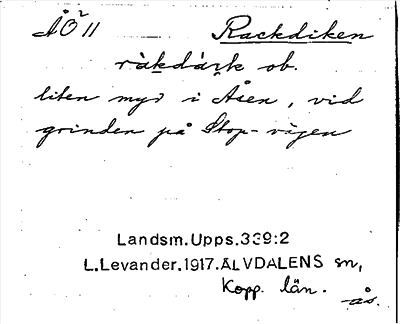 ÅÖ² 11 Rackdiken
ràkdárk ob.
liten myr i Åsen, vid
grinden på Stop-vägen
Landsm.Upps.339:2
L.Levander.1917.ÄLVDALENS sn,
Kopp. län.
ås.